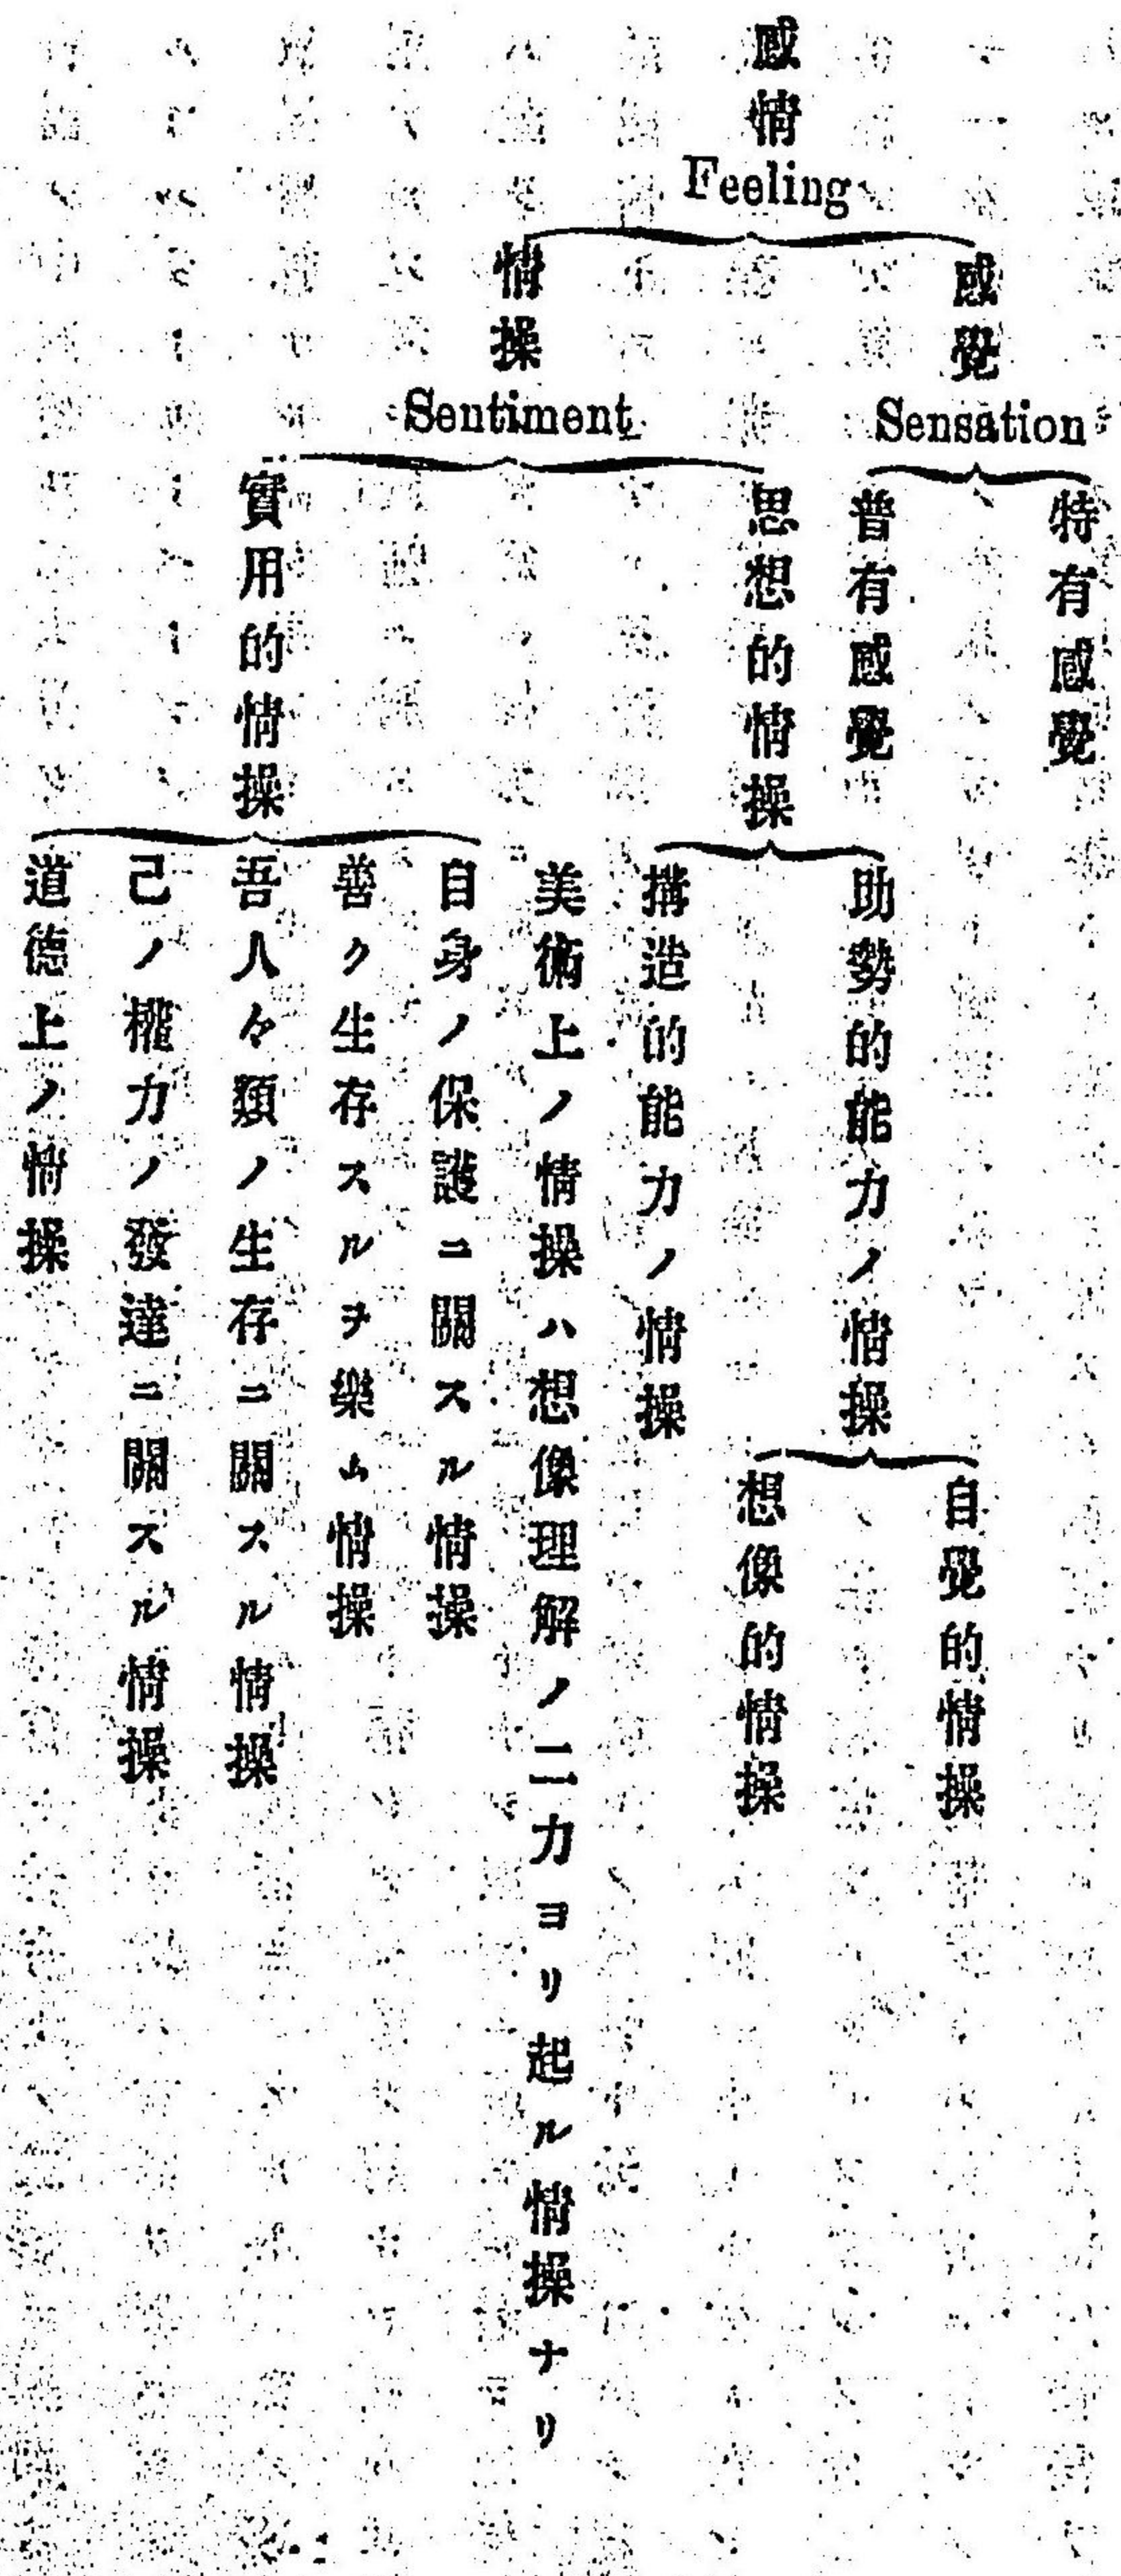 感情
Feeling
感覺
Sensation
特有感覺
普有感覺
情操
Sentiment
思想的情操
助勢的能力ノ情操
自覺的情操
想像的情操
搆造的能力ノ情操
美術上ノ情操ハ想像理解ノ二力ヨリ起ル情操ナリ
實用的情操
自身ノ保護ニ關スル情操
善ク生存スルヲ樂ム情操
吾人々類ノ生存ニ關スル情操
己ノ權力ノ發達ニ關スル情操
道德上ノ情操